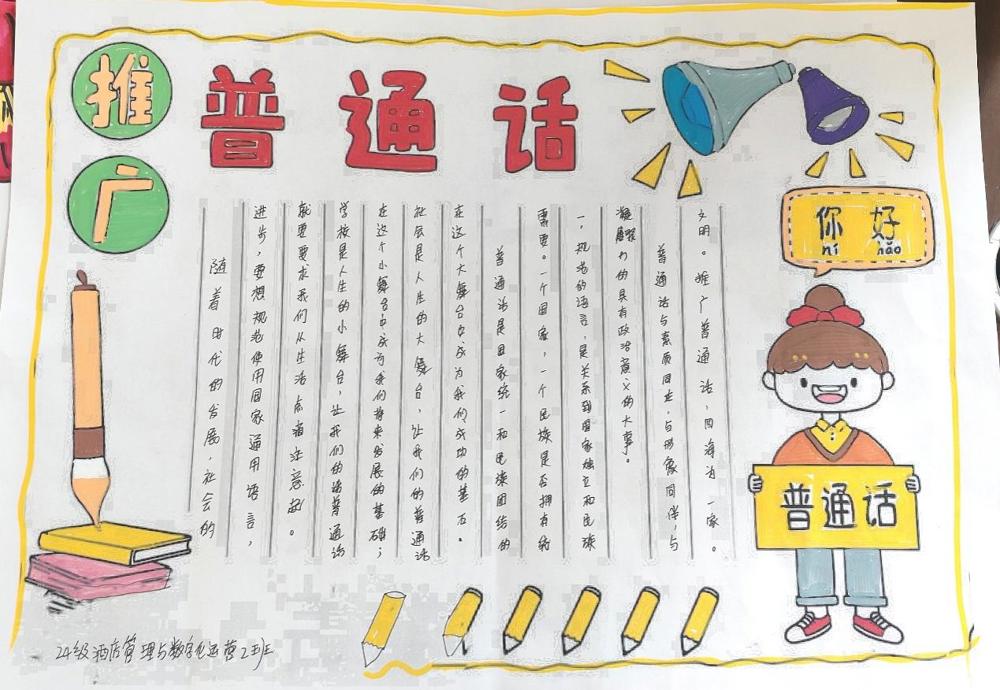 推广
普通话
你好
nǐ hǎo
普通话
随着时代的发展,社会的
进步,要想规范使用国家通用语言,
就要要求我们从生活点滴注意起。
学校是人生的小舞台,让我们的普通话
在这个小舞台中成为我们将来发展的基础;
社会是人生的大舞台,让我们的普通话
在这个大舞台中成为我们成功的基石。
普通话是国家统一和民族团结的
需要。一个国家,一个民族是否拥有统
一,规范的语言,是关系到国家独立和民族
凝聚力的具有政治意义的大事。
普通话与素质同走,与形象同伴,与
文明。推广普通话,四海为一家。
24级酒店管理与数字化运营2班